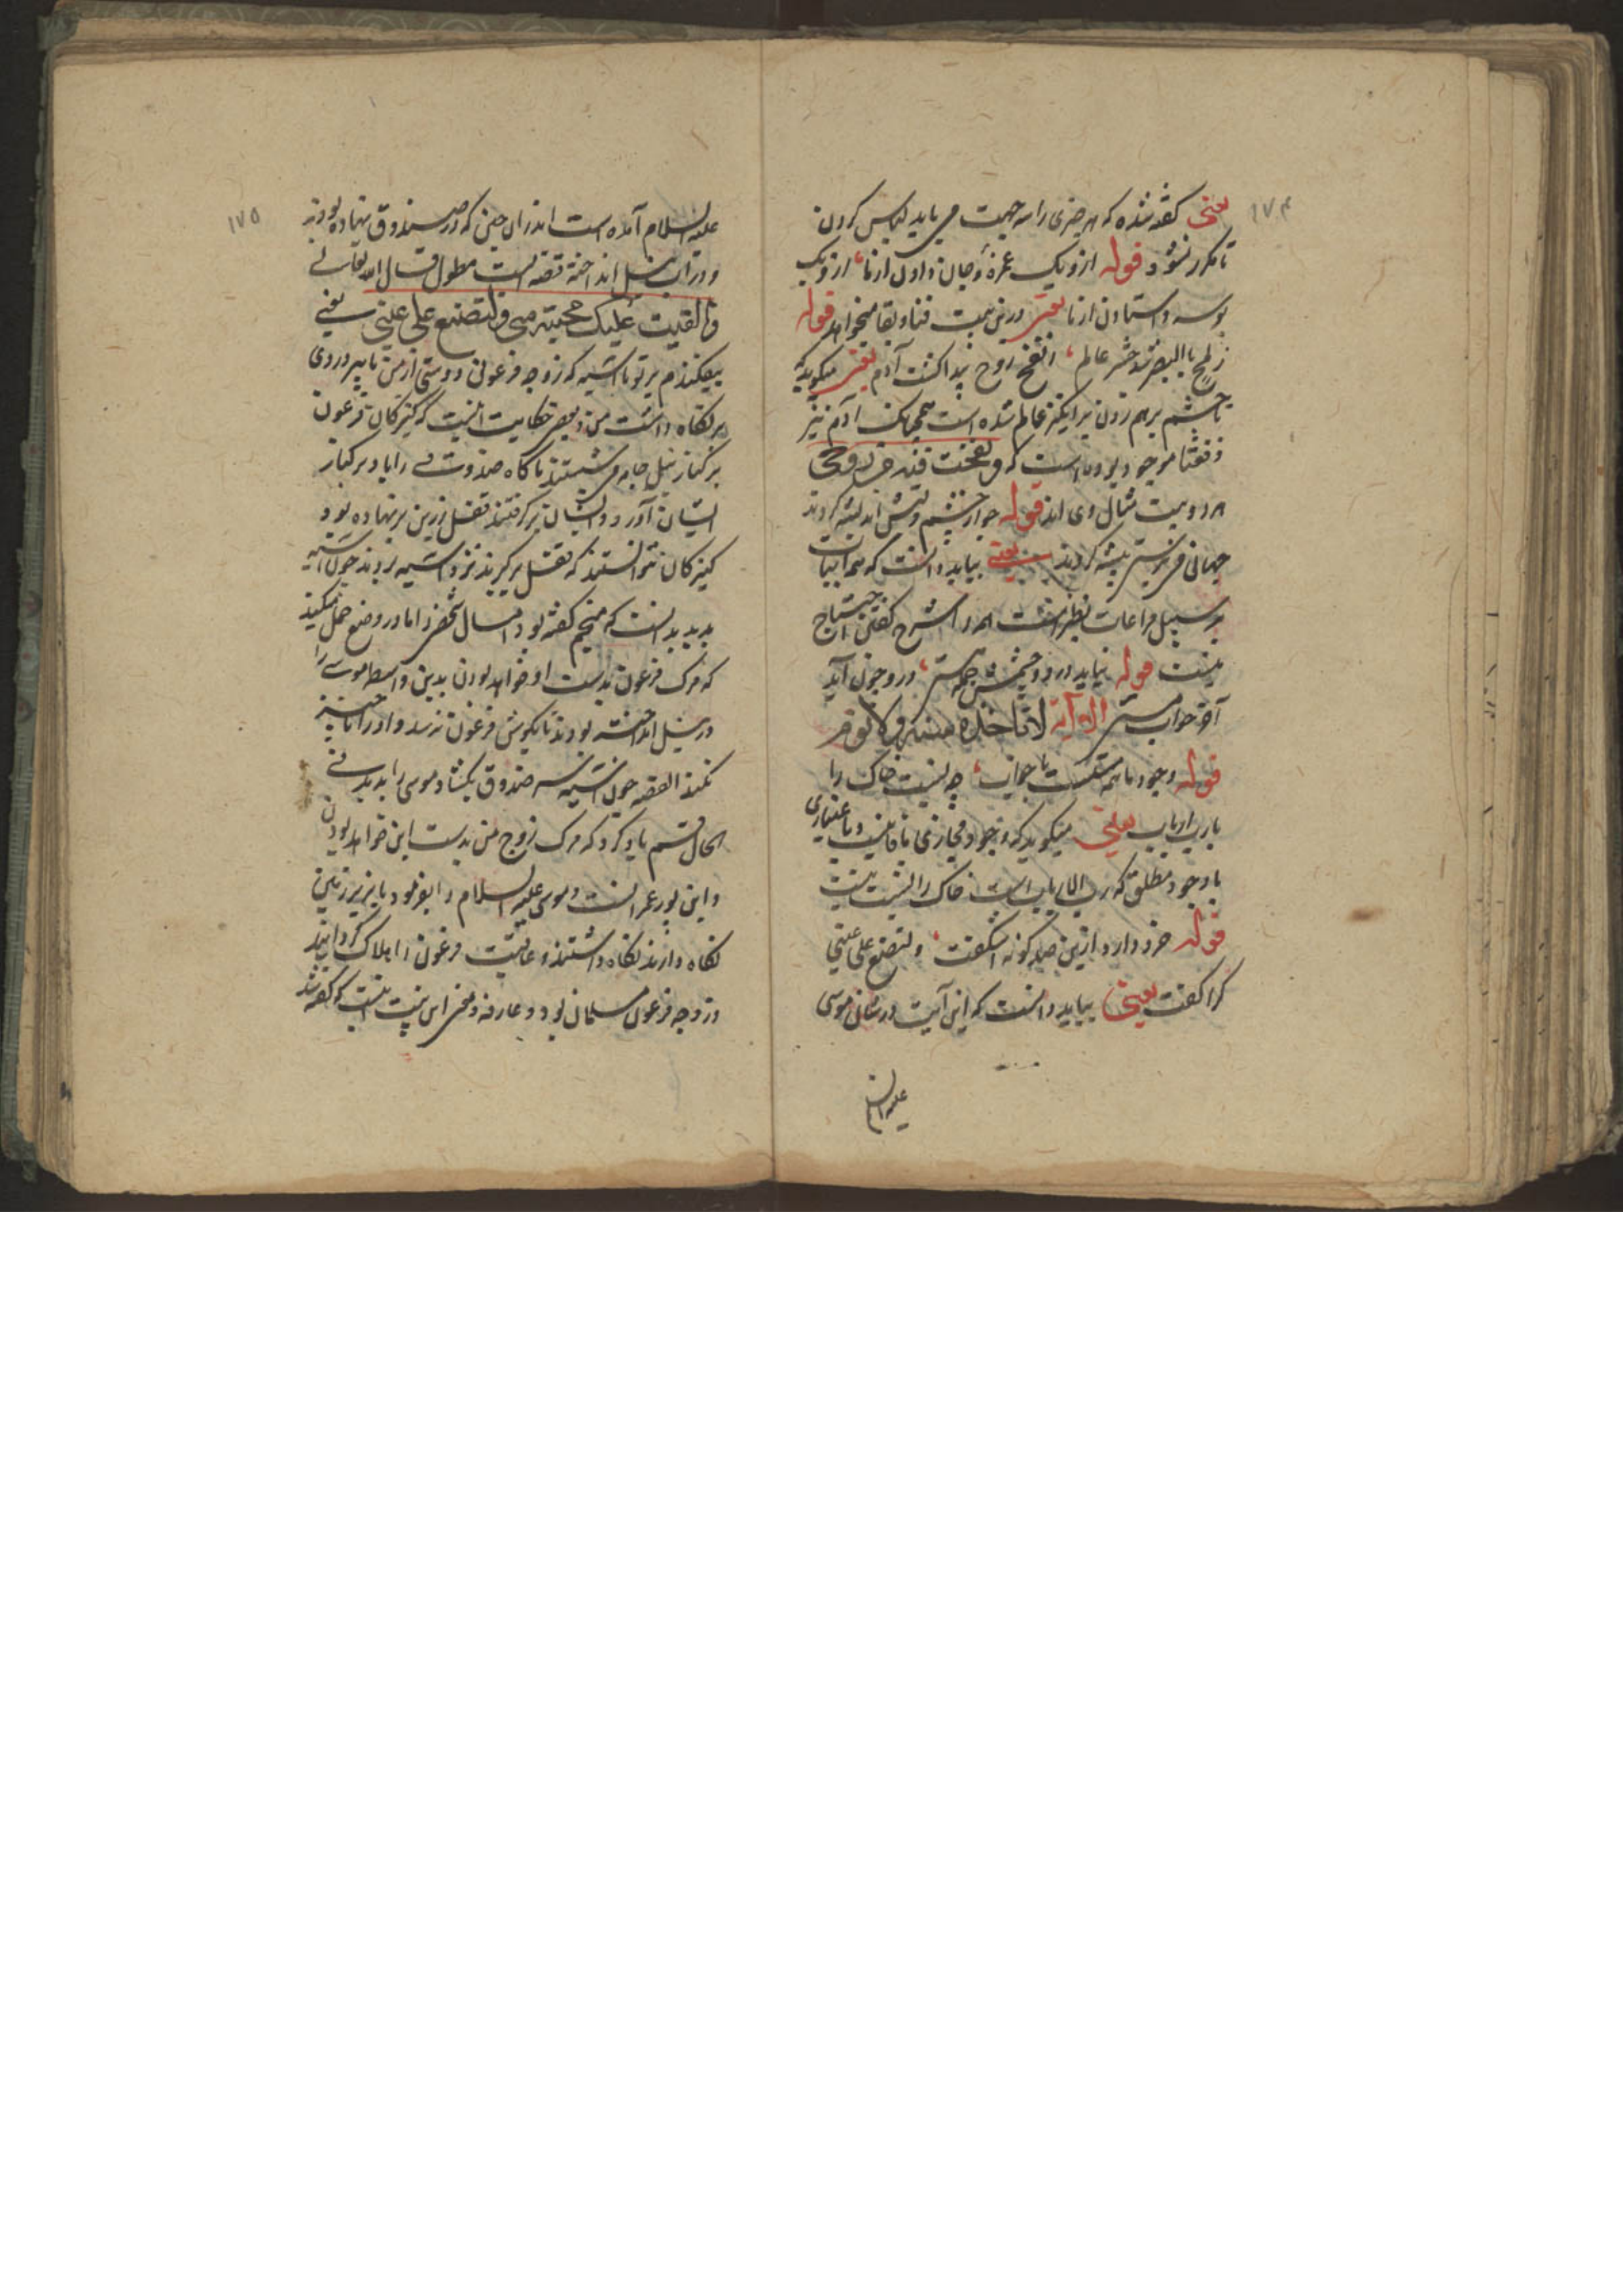 ۱۷۴
یعنی گفته شده که هر چیزی را سه جهت می باید لباس کردن
تا مکرر نشود قوله ازو یک غمزه و جان دادن از ما ازو یک
بوسه و استادن از ما یعنی درین بیت فنا و بقا میخواهد قوله
ز لمح بالبصر شد حشر عالم ز نفخ روح پیدا گشت آدم یعنی میگوید که
تا چشم برهم زدن برانگیز عالم شده است همچنانک آدم نیز
دفعتا موجود بوده است که و نفخت فیه من روحی
هر دو بیت مثال وی اند قوله چو از چشم و لبش اندیشه کردند
جهانی می پرستی پیشه کردند یعنی بباید دانست که هم ابیات
بر سبیل مراعات نظیر است هر را شرح گفتن احتیاج
نیست قوله نیاید در دو چشمش جمله هستی درو چون آید
آخر خواب مستی الآیة لا تاخذه سنة ولا نوم
قوله وجود ما همه مستیست یا خواب چه نسبت خاک را
با رب ارباب یعنی میگوید که وجود مجازی ما فانیست و ما اعتباری
با وجود مطلق که رب الارباب است خاک را نسبت نیست
قوله خرد دارد ازین صد گونه اشگفت ولتصنع علی عینی
کرا گفت یعنی بباید دانست که این آیت در شان موسی
علیه السلام
۱۷۵
علیه السلام آمده است اندران حین که در صندوق نهاده بودند
و در آب نیل انداخته قصه ایست مطول قال الله تعالی
والقیت علیک محبة منی ولتصنع علی عینی یعنی
بیفکندم بر تو تا آسیه که زوجه فرعونی دوستی از من تا پرورد وی
بر نگاه داشت من و بعضی حکایت اینست که کنیزکان فرعون
بر کنار نیل جامه می شستند ناگاه صندوق را باد بر کنار
ایشان آورد و ایشان برگرفتند قفل زرین بر نهاده بود
کنیزکان نتوانستند که قفل برگیرند نزد آسیه بردند چون آسیه
بدید بدانست که منجم گفته بود امسال شخصی را مادر وضع حمل میکند
که مرگ فرعون بدست او خواهد بودن بدین واسطه موسی را
در نیل انداخته بودند تا بگوش فرعون نرسد و او را ناچیز
نکند القصه چون آسیه سر صندوق بگشاد موسی را بدید فی
الحال قسم یاد کرد که مرگ زوج من بدست این خواهد بودن
و این پور عمرانست و موسی علیه السلام را بفرمود تا بزیر زمین
نگاه دارند نگاه داشتند و عاقبت فرعون را هلاک گردانید
و زوجه فرعون مسلمان بود و عارفه و معنی این بیت اینست که گفته شد